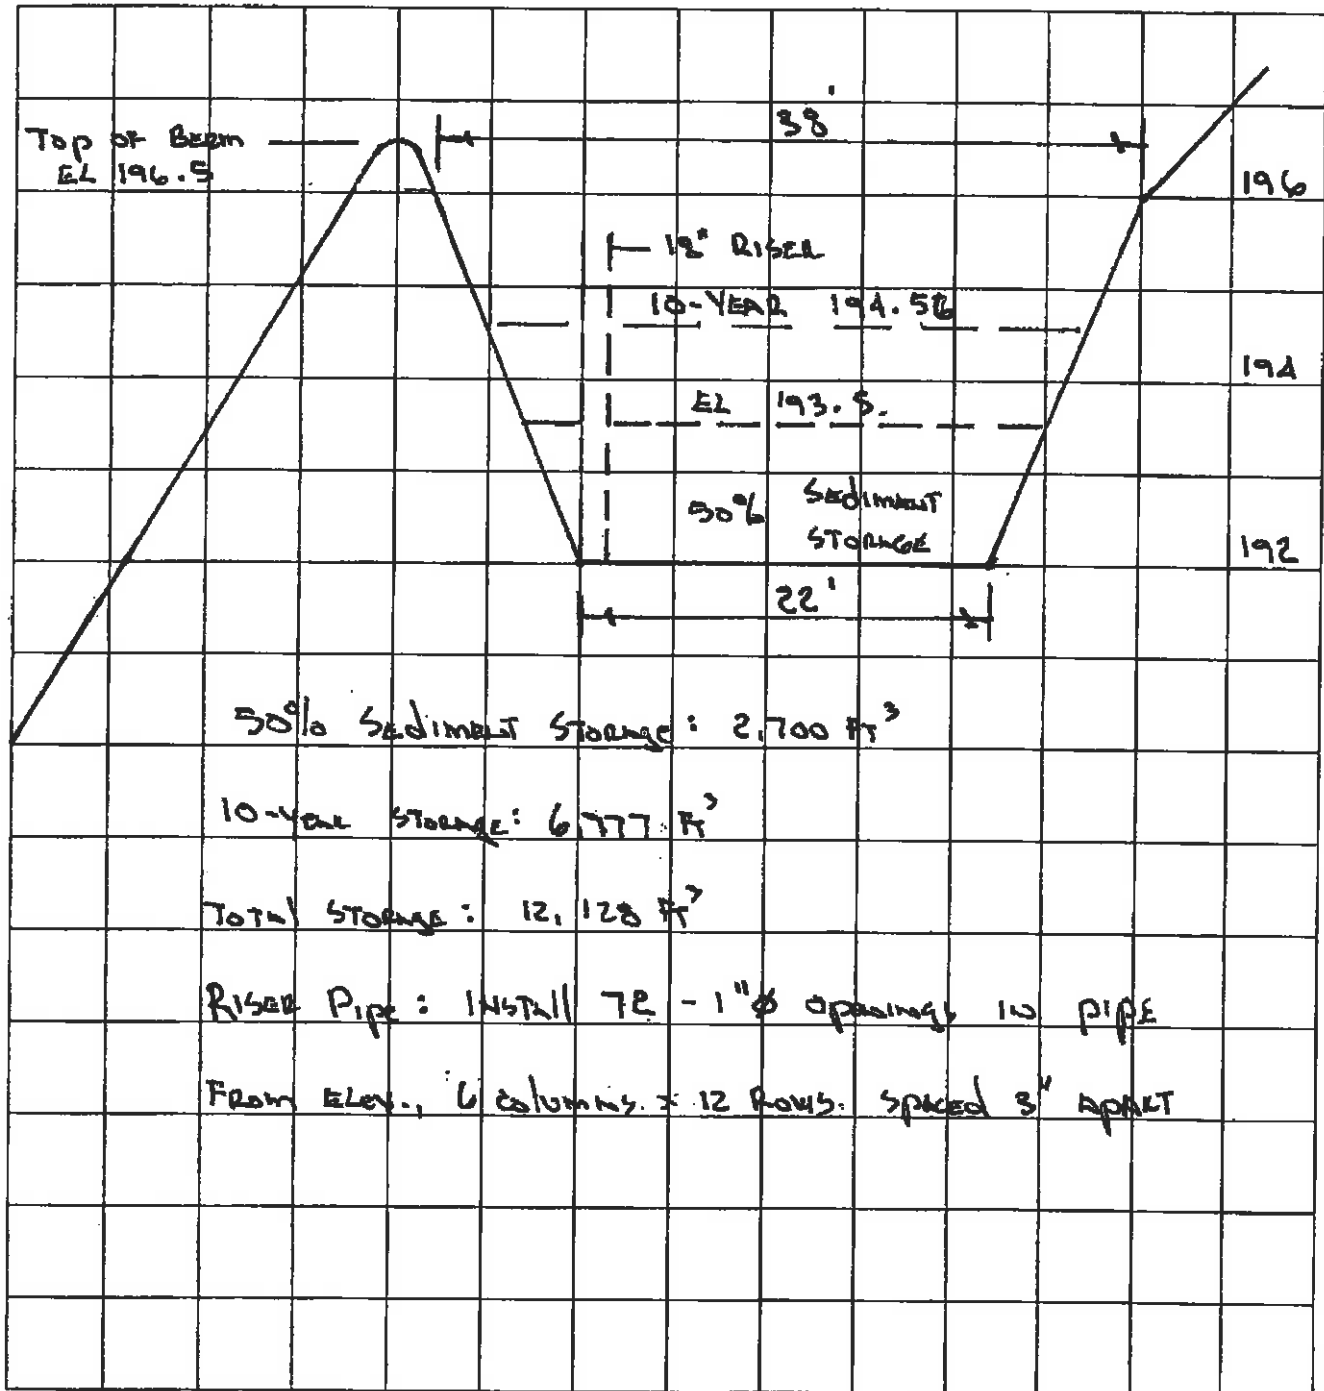 38'
Top of Berm
EL 196.5
196
RISER
10-YEAR 194.56
194
EL 193.5.
50% Sediment
STORAGE
192
22'
50% Sediment Storage: 2,700 FT³
10-year Storage: 6,777 FT³
Total Storage: 12,128 FT³
Riser Pipe: INSTALL 72 - 1"ø openings in pipe
From Elev., 6 columns x 12 Rows. spaced 3" apart